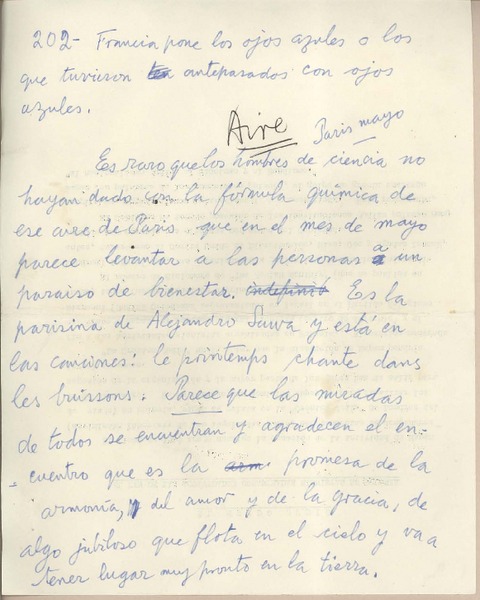 202- Francia pone los ojos azules a los
que tuvieron antepasados con ojos
azules.
Aire
Paris mayo
Es raro que los hombres de ciencia no
hayan dado con la fórmula química de
ese aire de París que en el mes de mayo
parece levantar a las personas a un
paraiso de bienestar. indefinió Es la
parisina de Alejandro Sawa y está en
las canciones: le printemps chante dans
les buissons. Parece que las miradas
de todos se encuentran y agradecen el en-
cuentro que es la arm promesa de la
armonía, del amor y de la gracia, de
algo jubiloso que flota en el cielo y va a
tener lugar muy pronto en la tierra.